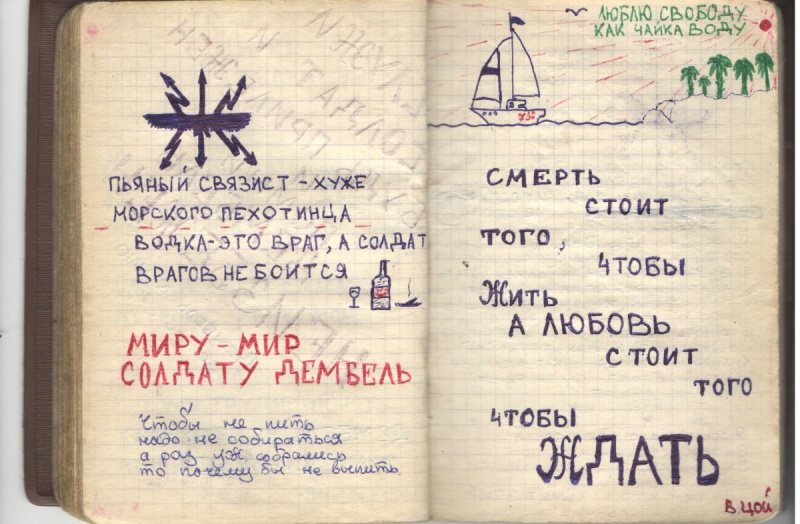 ПЬЯНЫЙ СВЯЗИСТ - ХУЖЕ
МОРСКОГО ПЕХОТИНЦА
ВОДКА-ЭТО ВРАГ, А СОЛДАТ
ВРАГОВ НЕ БОИТСЯ
МИРУ-МИР
СОЛДАТУ ДЕМБЕЛЬ
Чтобы не пить
надо не собираться
а раз уж собрались
то почему бы не выпить.
ЛЮБЛЮ СВОБОДУ
КАК ЧАЙКА ВОДУ
СМЕРТЬ
СТОИТ
ТОГО,
ЧТОБЫ
ЖИТЬ
А ЛЮБОВЬ
СТОИТ
ТОГО
ЧТОБЫ
ЖДАТЬ
В. ЦОЙ